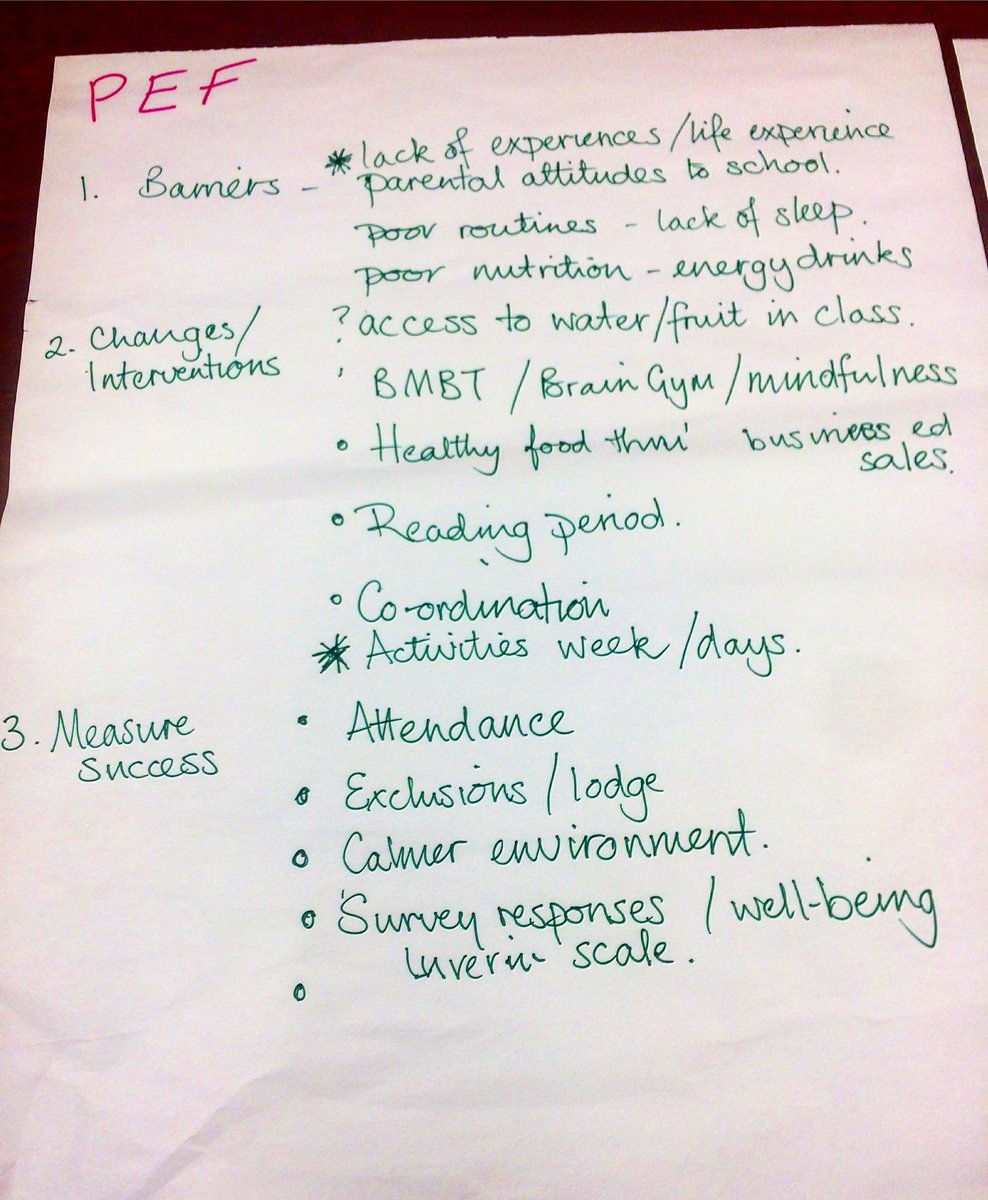 PEF
1. Barriers - * lack of experiences/life experience
parental attitudes to school.
poor routines - lack of sleep.
poor nutrition - energy drinks
2. Changes/ ? access to water/fruit in class.
Interventions
' BMBT / Brain Gym / mindfulness
• Healthy food thru' business ed
sales.
• Reading period.
• Co-ordination
* Activities week/days.
3. Measure • Attendance
success
• Exclusions/lodge
• Calmer environment.
• Survey responses / well-being
scale.
•